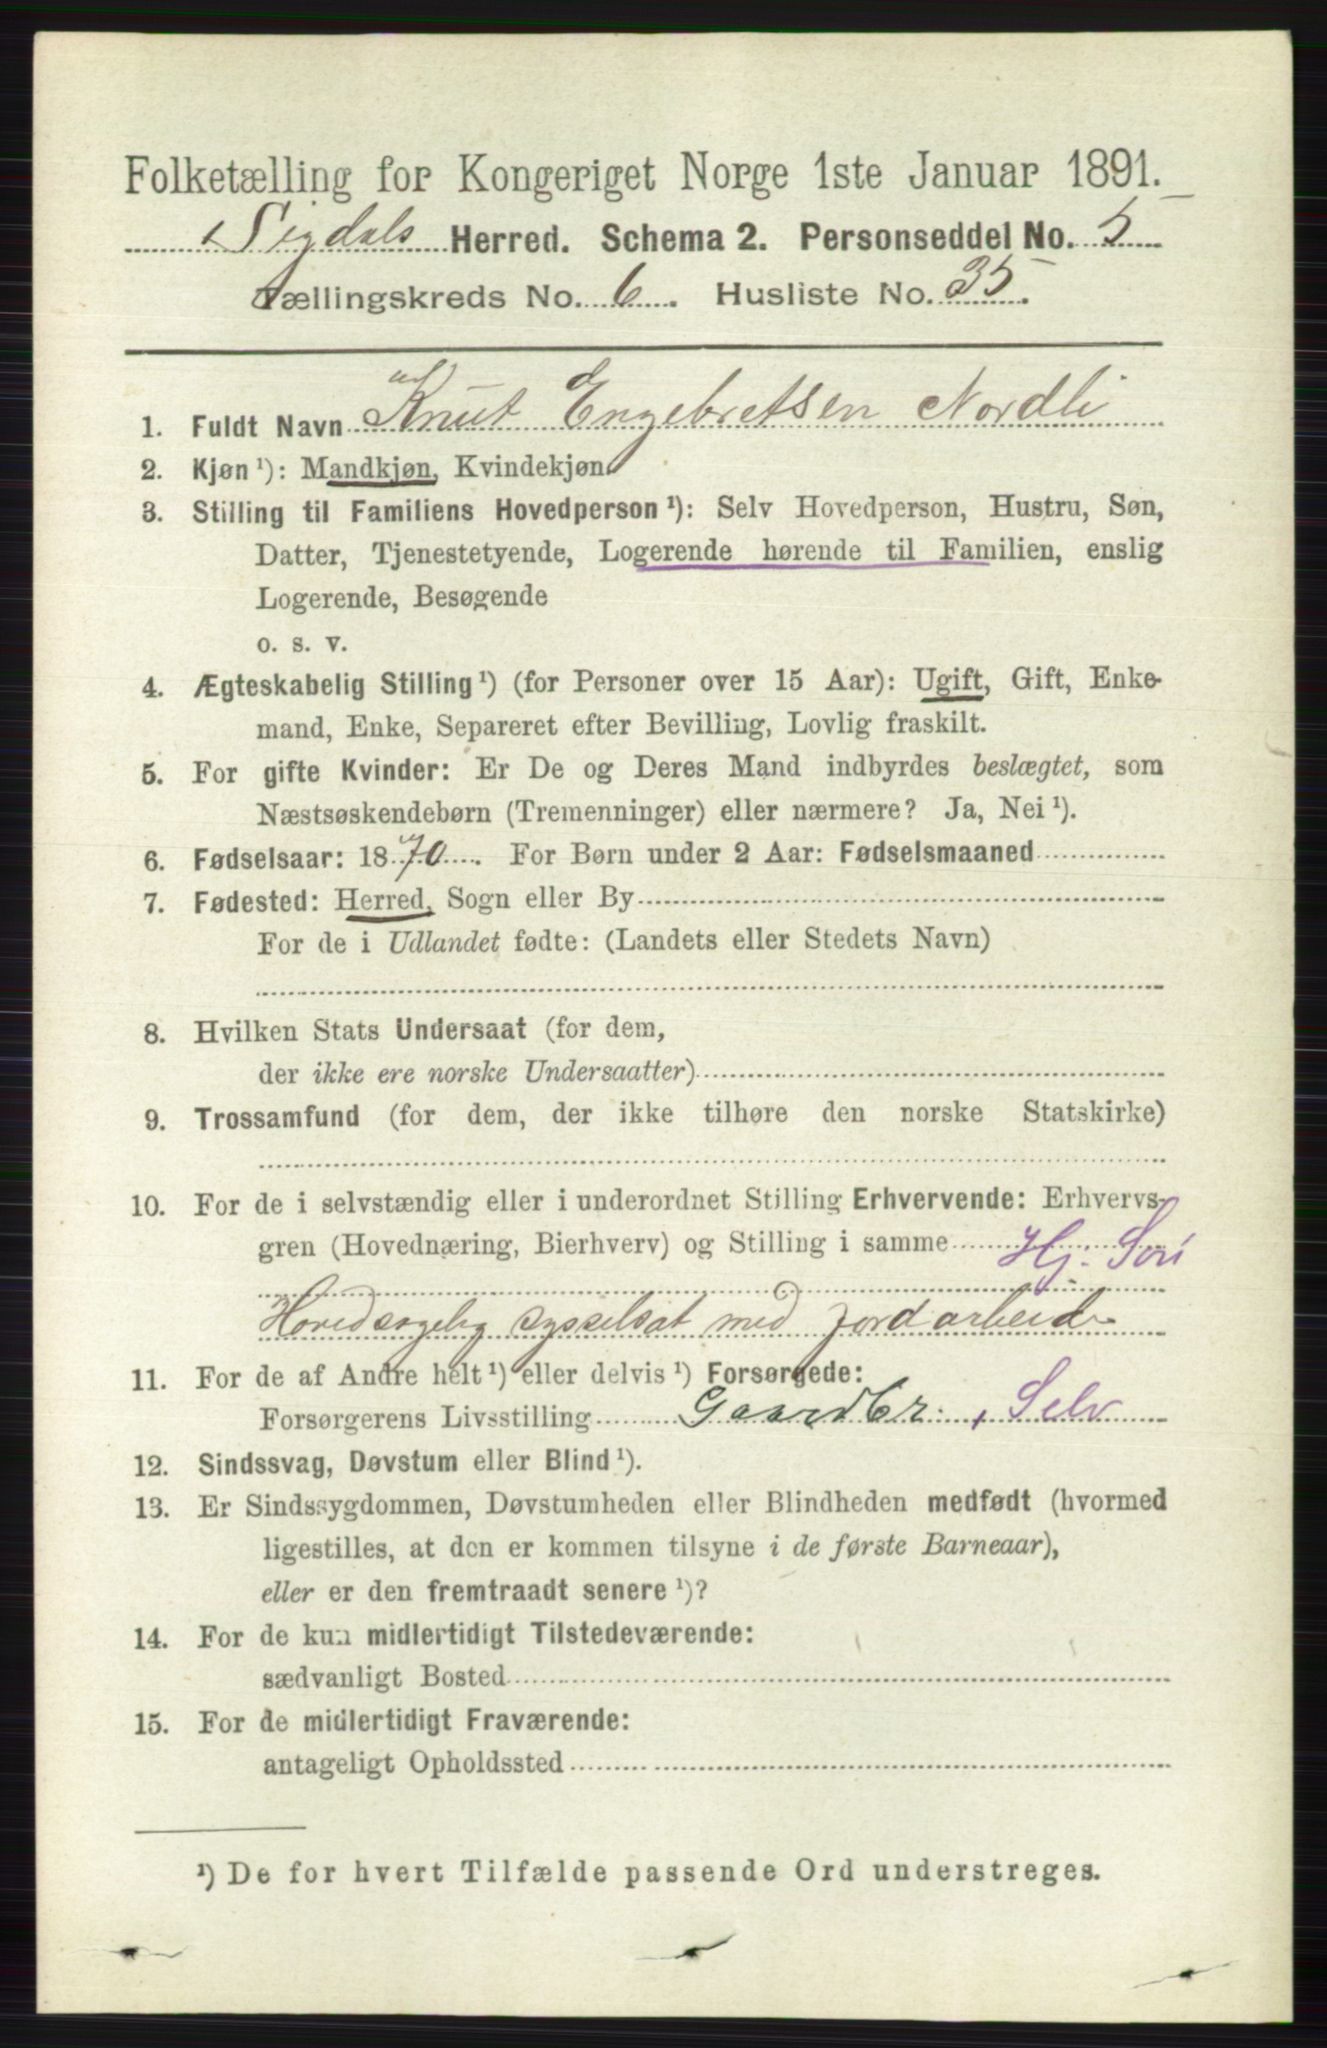 Folketælling for Kongeriget Norge 1ste Januar 1891.
Sigdals Herred. Schema 2. Personseddel No. 5
Tællingskreds No. 6. Husliste No. 35.
1. Fuldt Navn Knut Engebretsen Nordli
2. Kjøn ¹): Mandkjøn, Kvindekjøn.
3. Stilling til Familiens Hovedperson ¹): Selv Hovedperson, Hustru, Søn,
Datter, Tjenestetyende, Logerende hørende til Familien, enslig
Logerende, Besøgende
o. s. v.
4. Ægteskabelig Stilling ¹) (for Personer over 15 Aar): Ugift, Gift, Enke-
mand, Enke, Separeret efter Bevilling, Lovlig fraskilt.
5. For gifte Kvinder: Er De og Deres Mand indbyrdes beslægtet, som
Næstsøskendebørn (Tremenninger) eller nærmere? Ja, Nei ¹).
6. Fødselsaar: 1870. For Børn under 2 Aar: Fødselsmaaned
7. Fødested: Herred, Sogn eller By
For de i Udlandet fødte: (Landets eller Stedets Navn)
8. Hvilken Stats Undersaat (for dem,
der ikke ere norske Undersaatter)
9. Trossamfund (for dem, der ikke tilhøre den norske Statskirke)
10. For de i selvstændig eller i underordnet Stilling Erhvervende: Erhvervs-
gren (Hovednæring, Bierhverv) og Stilling i samme Hj. Søn
Hovedsagelig sysselsat med jordarbeide
11. For de af Andre helt ¹) eller delvis ¹) Forsørgede:
Forsørgerens Livsstilling Gaardbr., Selv
12. Sindssvag, Døvstum eller Blind ¹).
13. Er Sindssygdommen, Døvstumheden eller Blindheden medfødt (hvormed
ligestilles, at den er kommen tilsyne i de første Barneaar),
eller er den fremtraadt senere ¹)?
14. For de kun midlertidigt Tilstedeværende:
sædvanligt Bosted
15. For de midlertidigt Fraværende:
antageligt Opholdssted
¹) De for hvert Tilfælde passende Ord understreges.